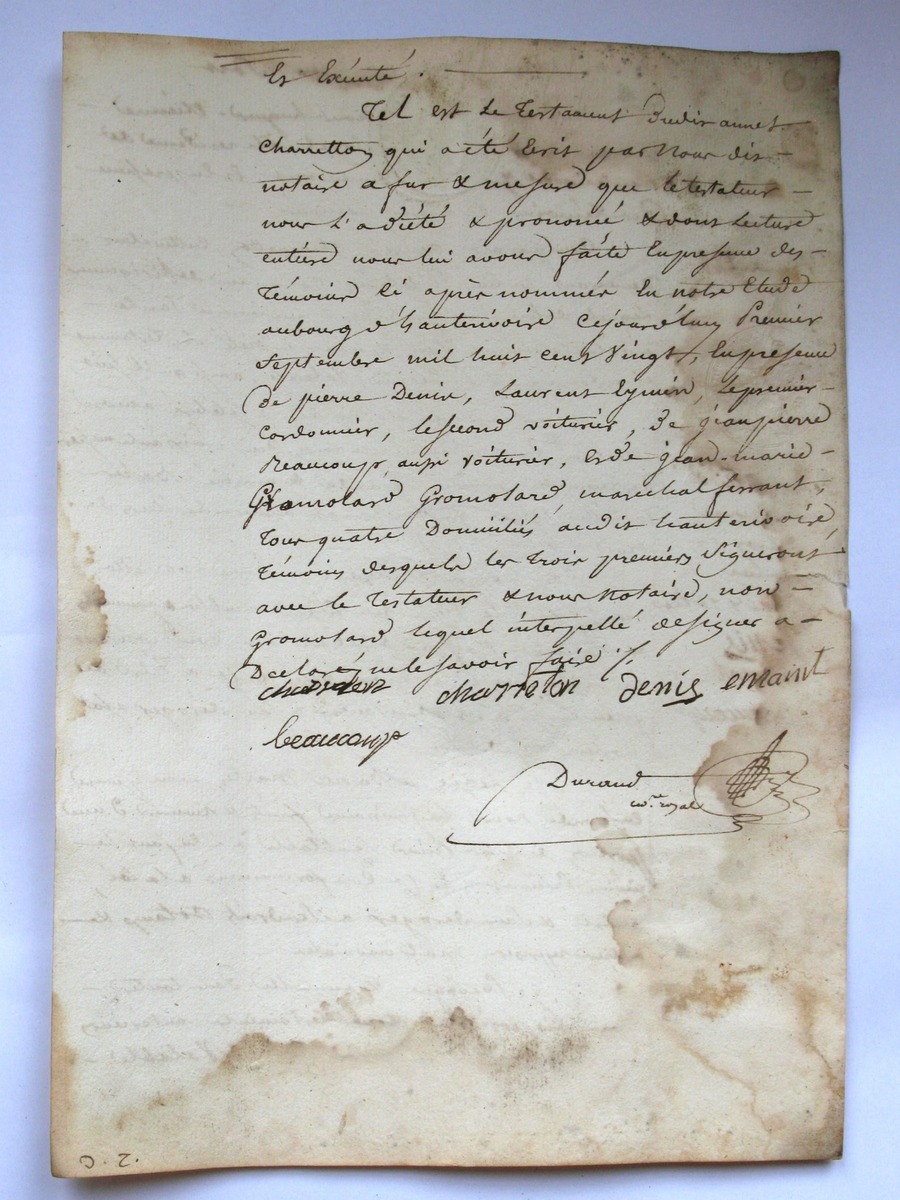 Et Exécuté.
Tel est Le Testament Dudit annet
Charretton qui a été Ecrit par Nous dit
notaire a fur & mesure que le testateur
nous L'a diété & prononcé & dont Lecture
entiere nous lui avons faite En presence des
Témoins Ci après nommés En notre Etude
au bourg d'hauterivoire Cejourd'hui Premier
Septembre mil huit cent Vingt, En presence
de pierre Denis, Laurent Eymin, Le premier
Cordonnier, le second voiturier, De jean pierre
Beaucoup, aussi voiturier, et de jean-marie
Gromolard maréchal ferrant,
Tous quatre Domiciliés audit hauterivoire
Témoins desquels les trois premiers Signeront
avec le Testateur & nous Notaire, non
Gromolard lequel interpellé de signer a
Declaré ne le savoir faire ·/.
charreton denis
beaucoup
Durand
no.re royal